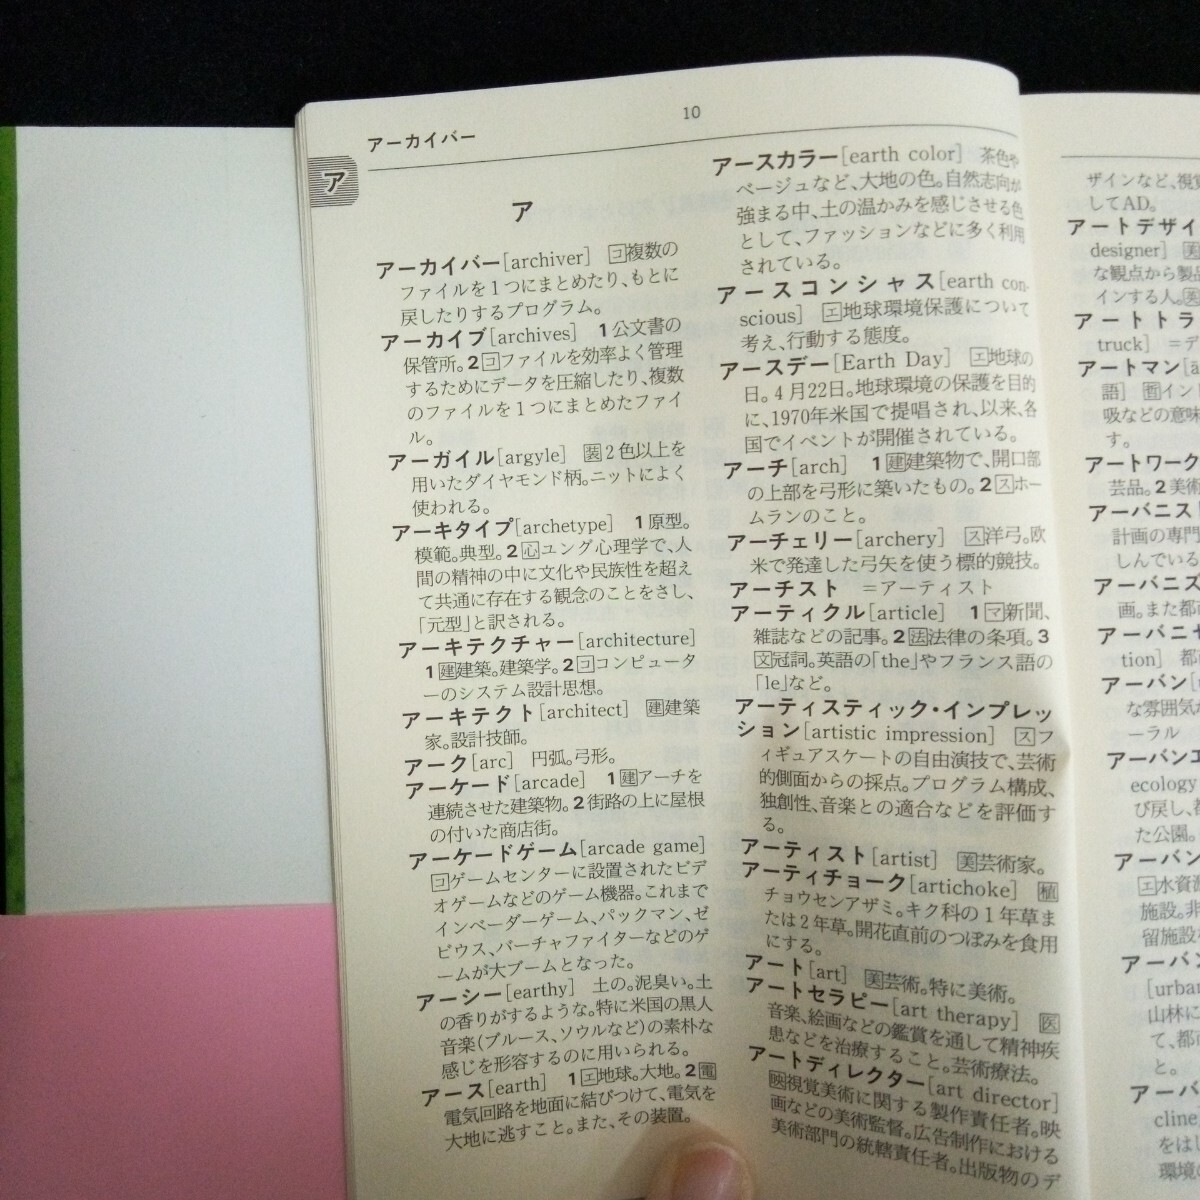 アーカイバー
10
ア
ア
アーカイバー[archiver] コ複数の
ファイルを1つにまとめたり、もとに
戻したりするプログラム。
アーカイブ[archives] 1公文書の
保管所。2コファイルを効率よく管理
するためにデータを圧縮したり、複数
のファイルを1つにまとめたファイ
ル。
アーガイル[argyle] 装2色以上を
用いたダイヤモンド柄。ニットによく
使われる。
アーキタイプ[archetype] 1原型。
模範。典型。2心ユング心理学で、人
間の精神の中に文化や民族性を超え
て共通に存在する観念のことをさし、
「元型」と訳される。
アーキテクチャー[architecture]
1建建築。建築学。2コンピュータ
ーのシステム設計思想。
アーキテクト[architect] 建建築
家。設計技師。
アーク[arc] 円弧。弓形。
アーケード[arcade] 1建アーチを
連続させた建築物。2街路の上に屋根
の付いた商店街。
アーケードゲーム[arcade game]
コゲームセンターに設置されたビデ
オゲームなどのゲーム機器。これまで
インベーダーゲーム、パックマン、ゼ
ビウス、バーチャファイターなどのゲ
ームが大ブームとなった。
アーシー[earthy] 土の。泥臭い。土
の香りがするような。特に米国の黒人
音楽(ブルース、ソウルなど)の素朴な
感じを形容するのに用いられる。
アース[earth] 1エ地球。大地。2電
電気回路を地面に結びつけて、電気を
大地に逃すこと。また、その装置。
アースカラー[earth color] 茶色や
ベージュなど、大地の色。自然志向が
強まる中、土の温かみを感じさせる色
として、ファッションなどに多く利用
されている。
アースコンシャス[earth con-
scious] エ地球環境保護について
考え、行動する態度。
アースデー[Earth Day] エ地球の
日。4月22日。地球環境の保護を目的
に、1970年米国で提唱され、以来、各
国でイベントが開催されている。
アーチ[arch] 1建建築物で、開口部
の上部を弓形に築いたもの。2スホー
ムランのこと。
アーチェリー[archery] ス洋弓。欧
米で発達した弓矢を使う標的競技。
アーチスト =アーティスト
アーティクル[article] 1マ新聞、
雑誌などの記事。2法法律の条項。3
文冠詞。英語の「the」やフランス語の
「le」など。
アーティスティック・インプレッ
ション[artistic impression] スフ
ィギュアスケートの自由演技で、芸術
的側面からの採点。プログラム構成、
独創性、音楽との適合などを評価す
る。
アーティスト[artist] 美芸術家。
アーティチョーク[artichoke] 植
チョウセンアザミ。キク科の1年草ま
たは2年草。開花直前のつぼみを食用
にする。
アート[art] 美芸術。特に美術。
アートセラピー[art therapy] 医
音楽、絵画などの鑑賞を通して精神疾
患などを治療すること。芸術療法。
アートディレクター[art director]
映視覚美術に関する製作責任者。映
画などの美術監督。広告制作における
美術部門の統轄責任者。出版物のデ
ザインなど、視覚
してAD。
アートデザイ
designer] 美
な観点から製品
インする人。英
アートトラ
truck] =デ
アートマン[
語] 哲イン
吸などの意味
す。
アートワーク
芸品。2美術
アーバニスト
計画の専門
しんでいる
アーバニズ
画。また都
アーバニゼ
tion] 都
アーバン[
な雰囲気
ーラル
アーバンエ
ecology
び戻し、都
た公園。
アーバン
エ水資源
施設。非
留施設
アーバン
[urban
山林に
て、都
と。
アーバ
cline
をはじ
環境の